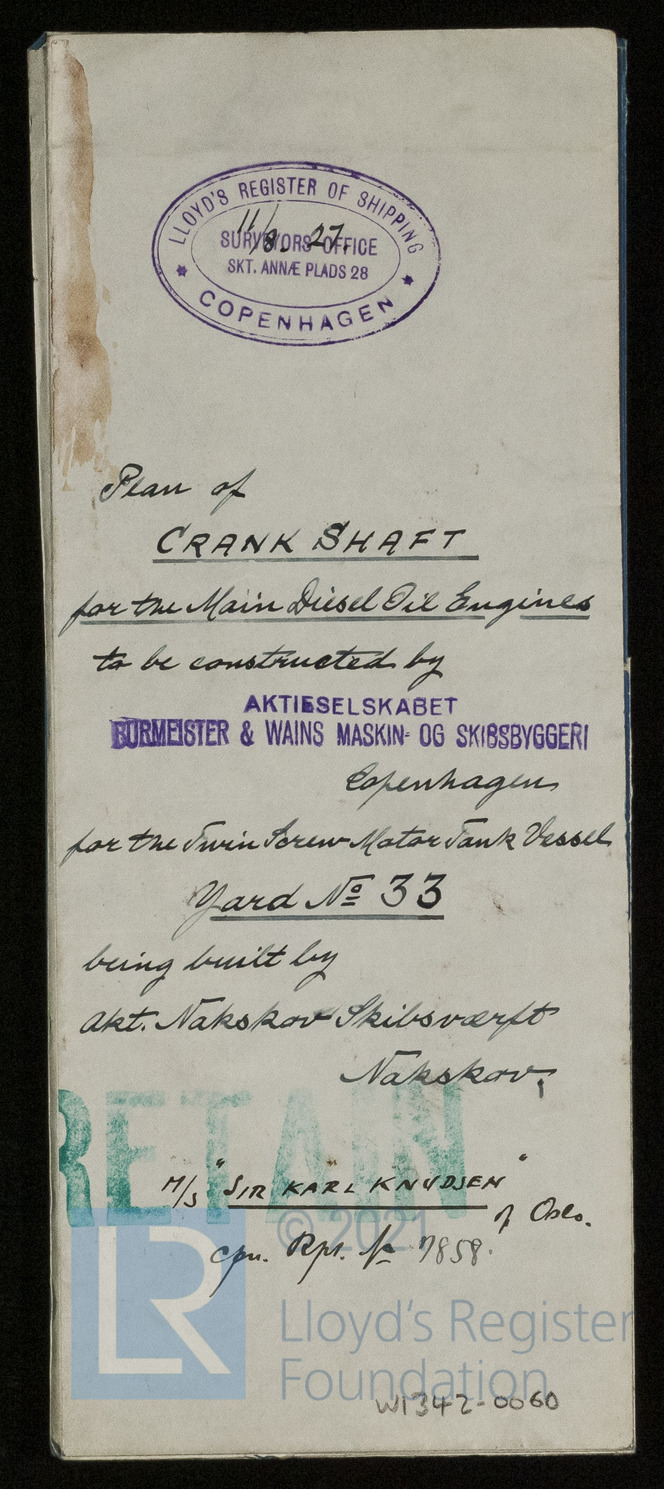 LLOYD'S REGISTER OF SHIPPING
11/8. 27.
SURVEYORS OFFICE
SKT. ANNÆ PLADS 28
COPENHAGEN
Plan of
CRANK SHAFT
for the Main Diesel Oil Engines
to be constructed by
AKTIESELSKABET
BURMEISTER & WAINS MASKIN- OG SKIBSBYGGERI
Copenhagen
for the Twin Screw Motor Tank Vessel
Yard № 33
being built by
Akt. Nakskov Skibsværft
Nakskov,
RETAIN
M/S "SIR KARL KNUDSEN"
of Oslo.
© 2021
Cpn. Rpt. № 7858.
LR
Lloyd's Register
Foundation
W1342-0060